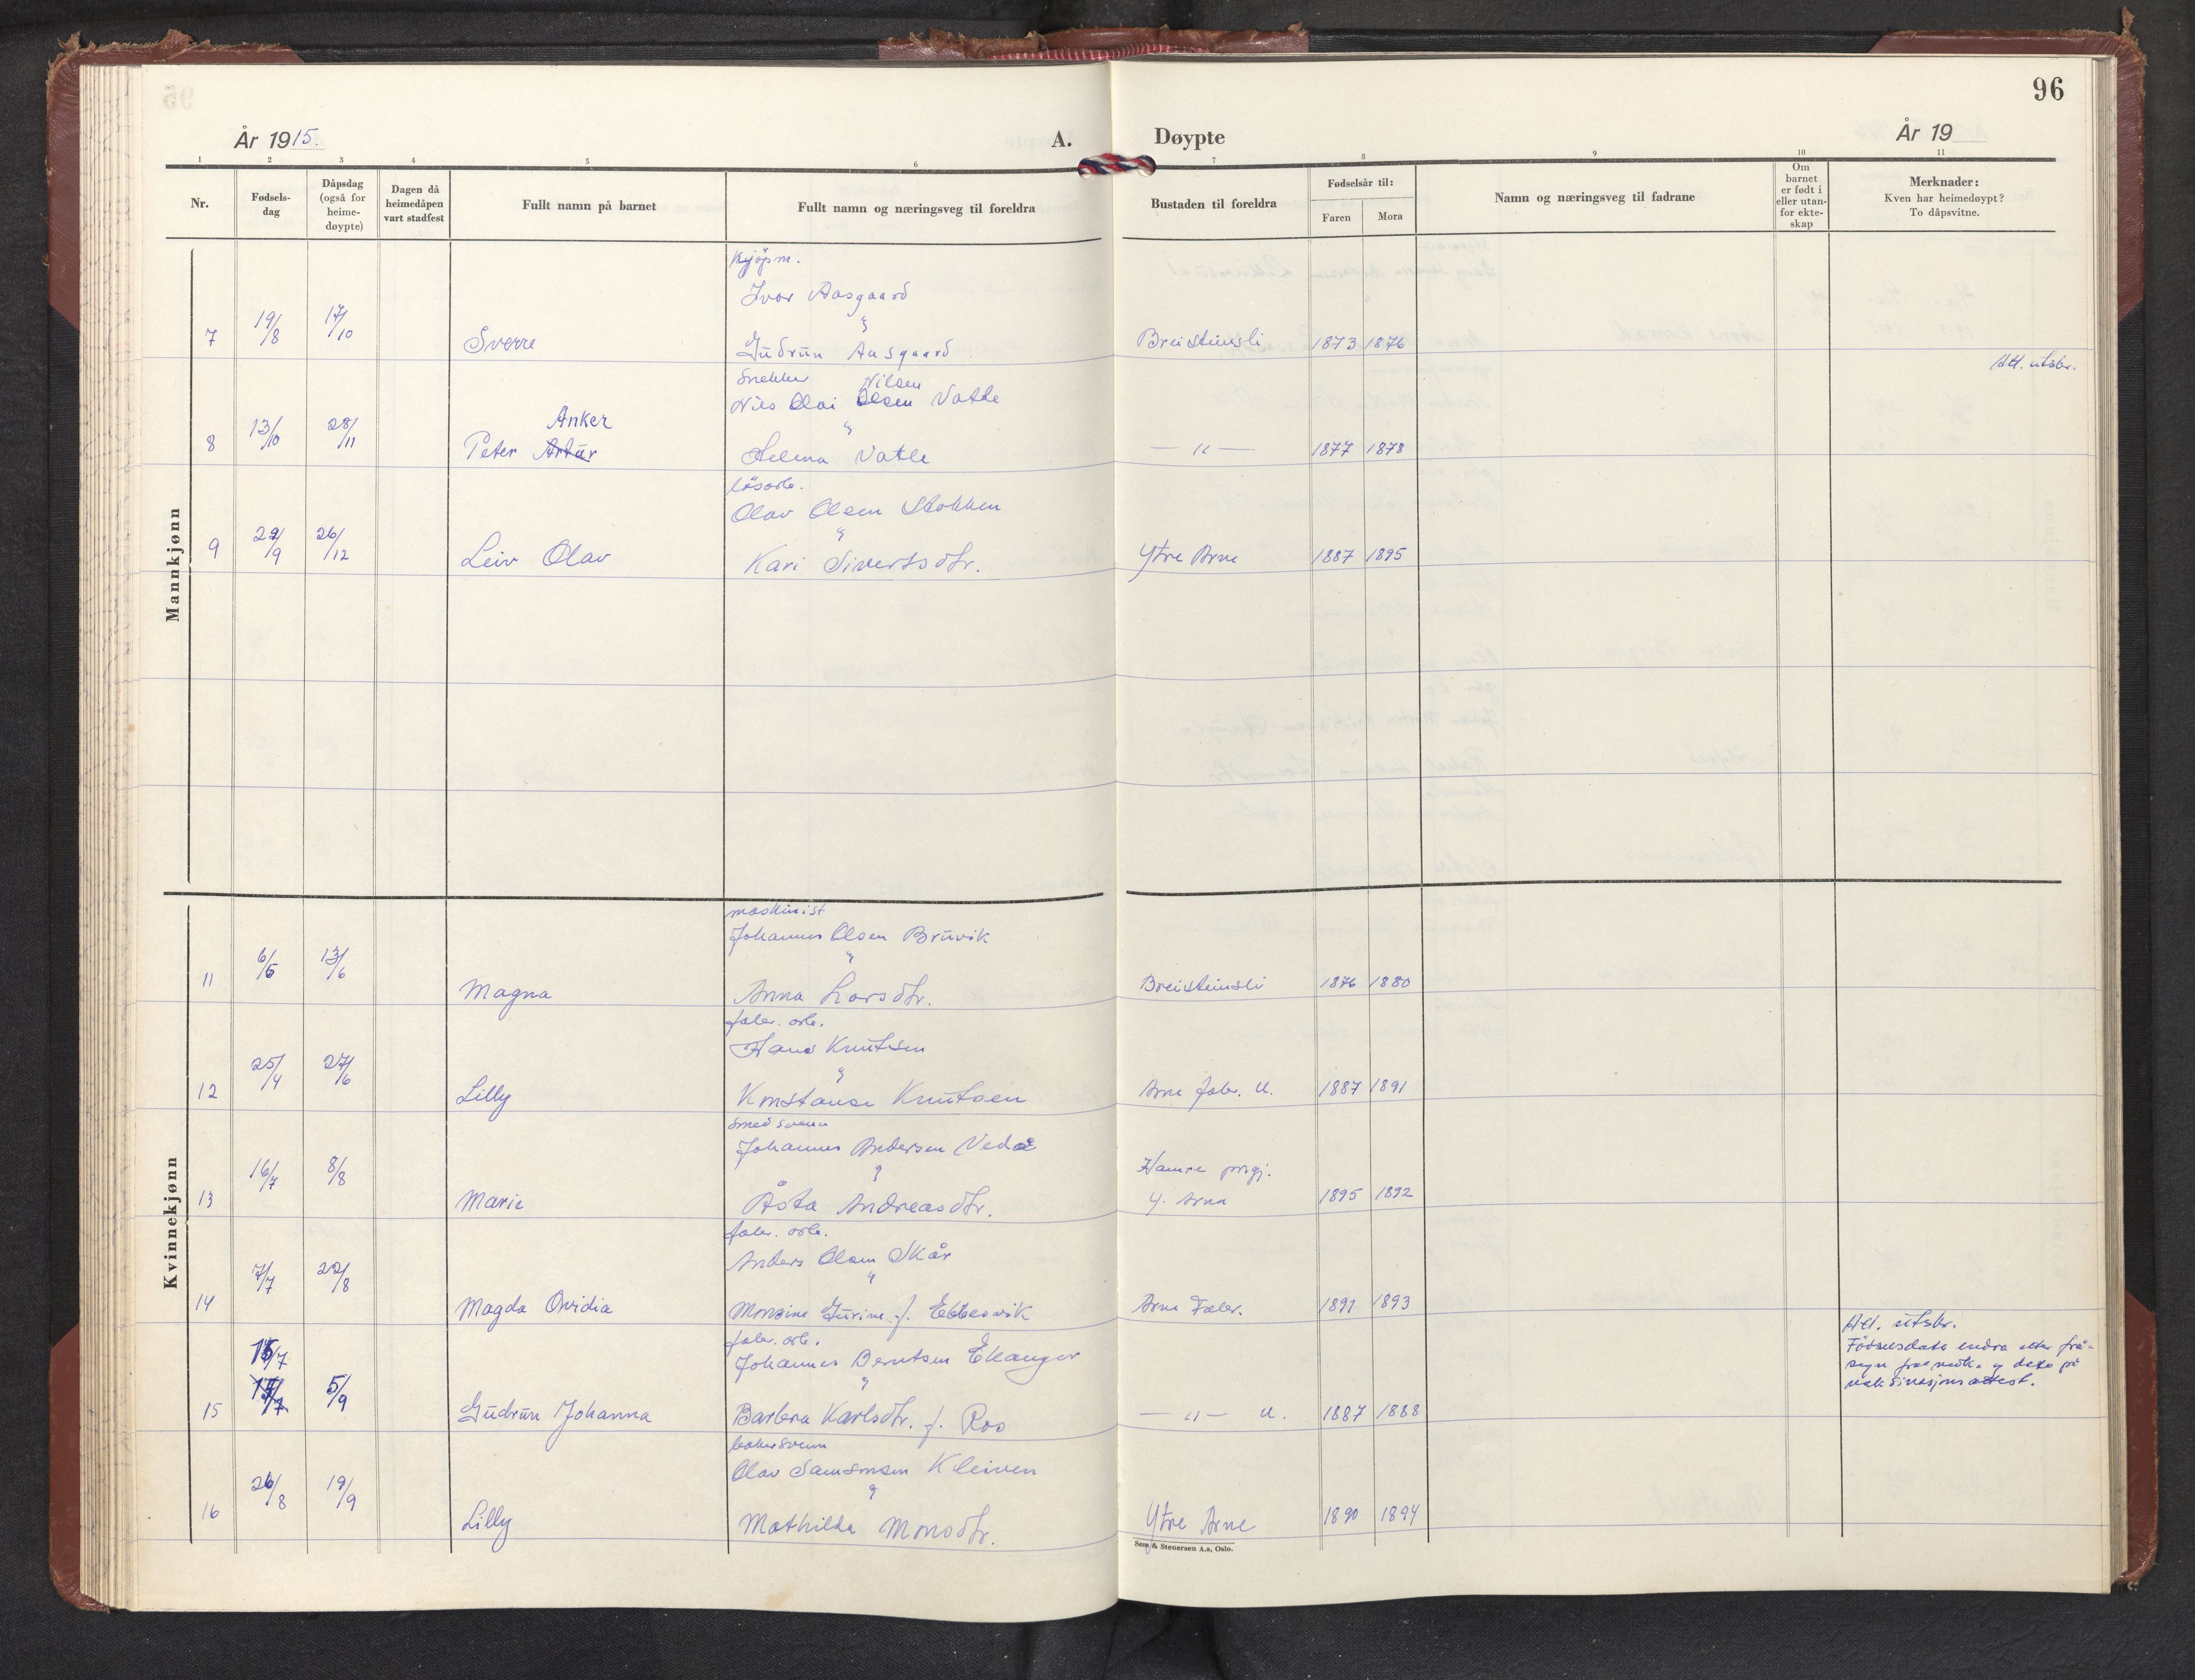 96
År 1915.
A.
Døypte
År 19
1 2 3 4 5 6 7 8 9 10 11
Nr.
Fødsels-
dag
Dåpsdag
(også for
heime-
døypte)
Dagen då
heimedåpen
vart stadfest
Fullt namn på barnet
Fullt namn og næringsveg til foreldra
Bustaden til foreldra
Fødselsår til:
Faren Mora
Namn og næringsveg til fadrane
Om
barnet
er født i
eller utan-
for ekte-
skap
Merknader:
Kven har heimedøypt?
To dåpsvitne.
Mannkjønn
Kjöpm.
Ivar Aasgaard
7 19/8 17/10 Sverre Gudrun Aasgaard Breisteinsli 1873 1876
Att. utskr.
Snekker Nilsen
Nils Olai Olsen Vatle
Anker
8 13/10 28/11 Peter Artur Helena Vatle — " — 1877 1878
lösarb.
Olav Olsen Stokken
9 29/9 26/12 Leiv Olav Kari Sivertsdtr. Ytre Arne 1887 1895
Kvinnekjønn
maskinist
Johannes Olsen Bruvik
11 6/5 13/6 Magna Anna Larsdtr. Breisteinsli 1876 1880
fabr. arb.
Hans Knutsen
12 25/4 27/6 Lilly Konstanse Knutsen Arne fabr. U. 1887 1891
smedsvenn
Johannes Andersen Vedå
Hamre prgj.
13 16/7 8/8 Marie Åsta Andreasdtr. Y. Arna 1895 1892
fabr. arb.
Anders Olsen Skår
14 7/7 22/8 Magda Ovidia Monsine Gurine f. Ebbesvik Arne Fabr. 1891 1893
Att. utskr.
15/7
fabr. arb.
Johannes Berntsen Ekanger
Födselsdato endra etter frå-
segn frå vedk. og dato på
vaksinasjonsattest.
15 5/9 Gudrun Johanna Barbra Karlsdtr. f. Ros — " — U. 1887 1888
bakersvenn
Olav Samsonsen Kleiven
16 26/8 19/9 Lilly Mathilda Monsdtr. Ytre Arne 1890 1894
Sem & Stenersen A.s, Oslo.